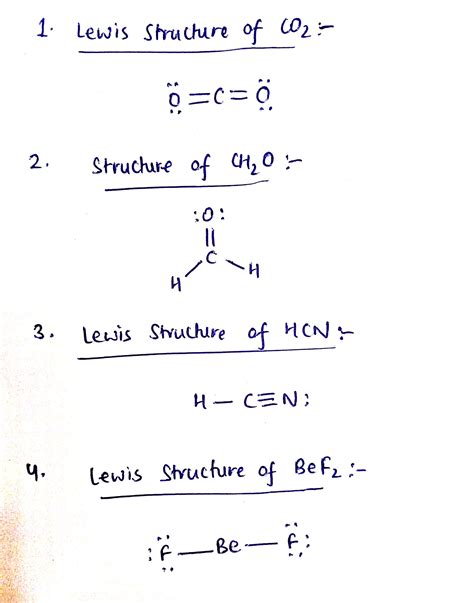 1. Lewis Structure of CO₂ :-
:Ö=C=Ö:
2. Structure of CH₂O :-
:O:
||
C
H H
3. Lewis Structure of HCN :-
H — C≡N:
4. Lewis Structure of BeF₂ :-
:F — Be — F: